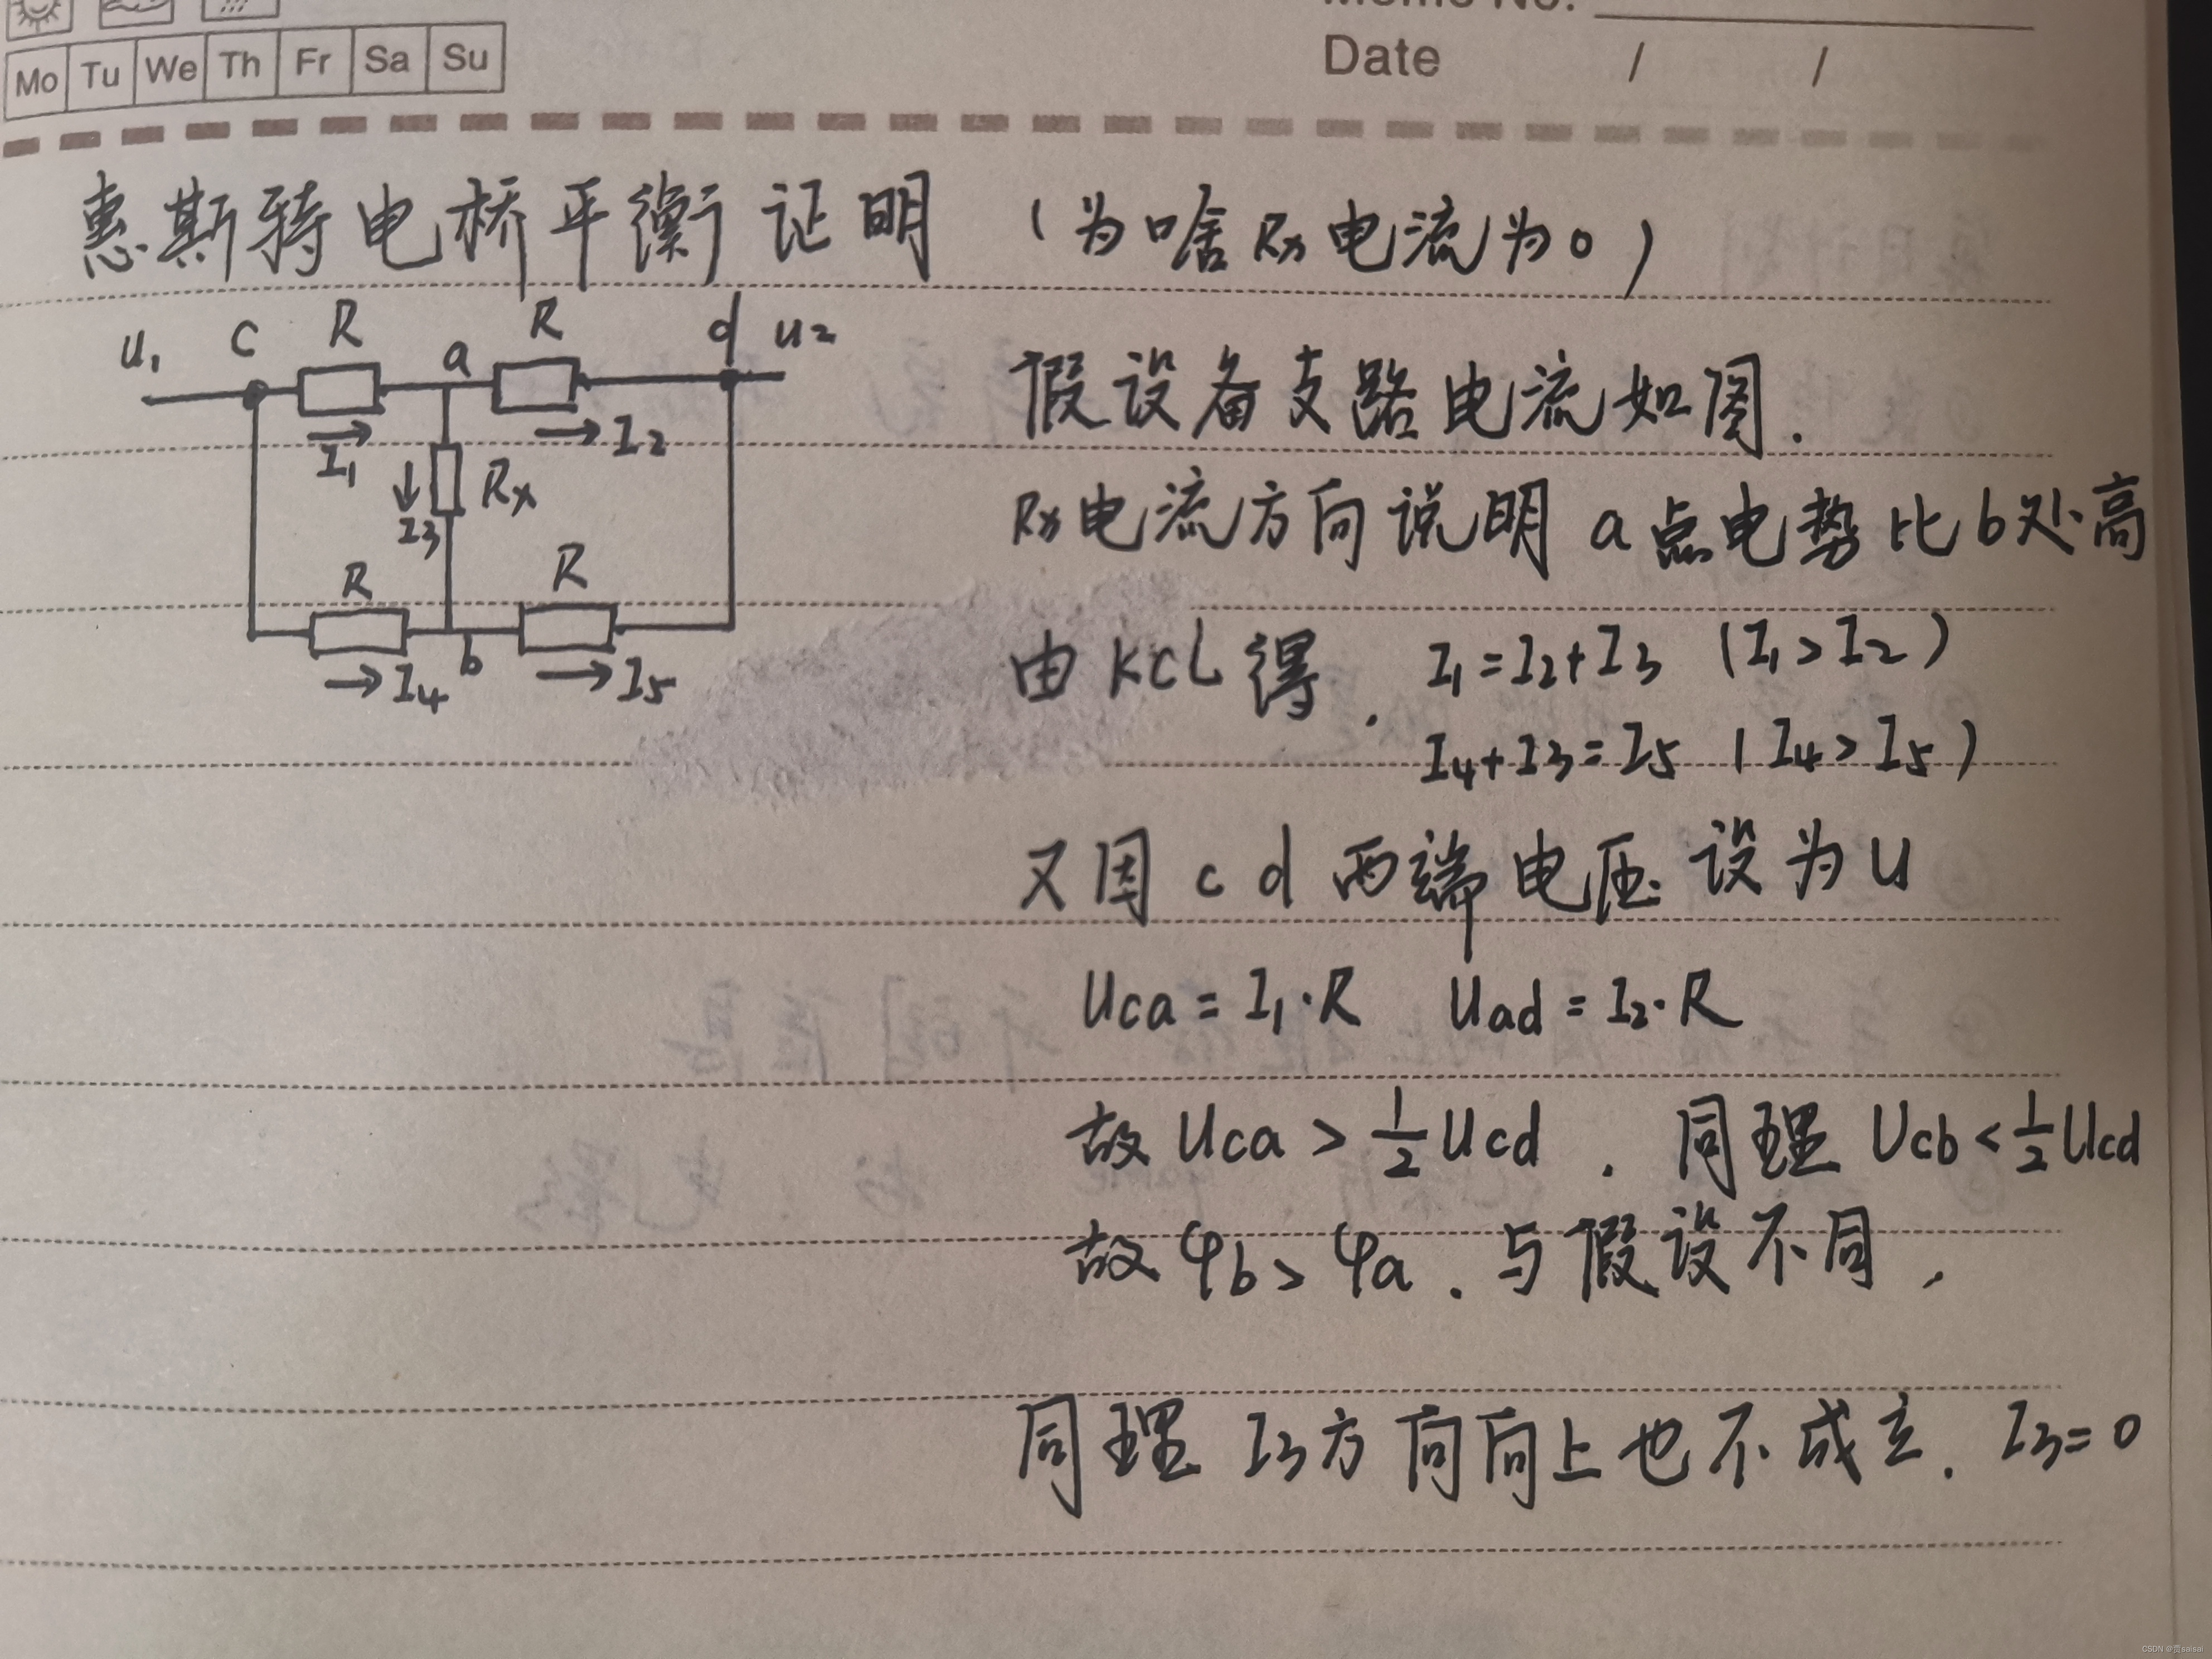 Mo Tu We Th Fr Sa Su
Date / /
惠斯特电桥平衡证明 (为啥Rx电流为0)
U1 c R a R d U2
I1 I2
I3 Rx
R R
I4 b I5
假设各支路电流如图.
Rx电流方向说明a点电势比b处高
由KCL得. I1=I2+I3 (I1>I2)
I4+I3=I5 (I4>I5)
又因 c d 两端电压设为U
Uca=I1·R Uad=I2·R
故Uca>1/2Ucd. 同理Ucb<1/2Ucd
故φb>φa. 与假设不同,
同理 I3方向向上也不成立. I3=0
CSDN @贾saisai